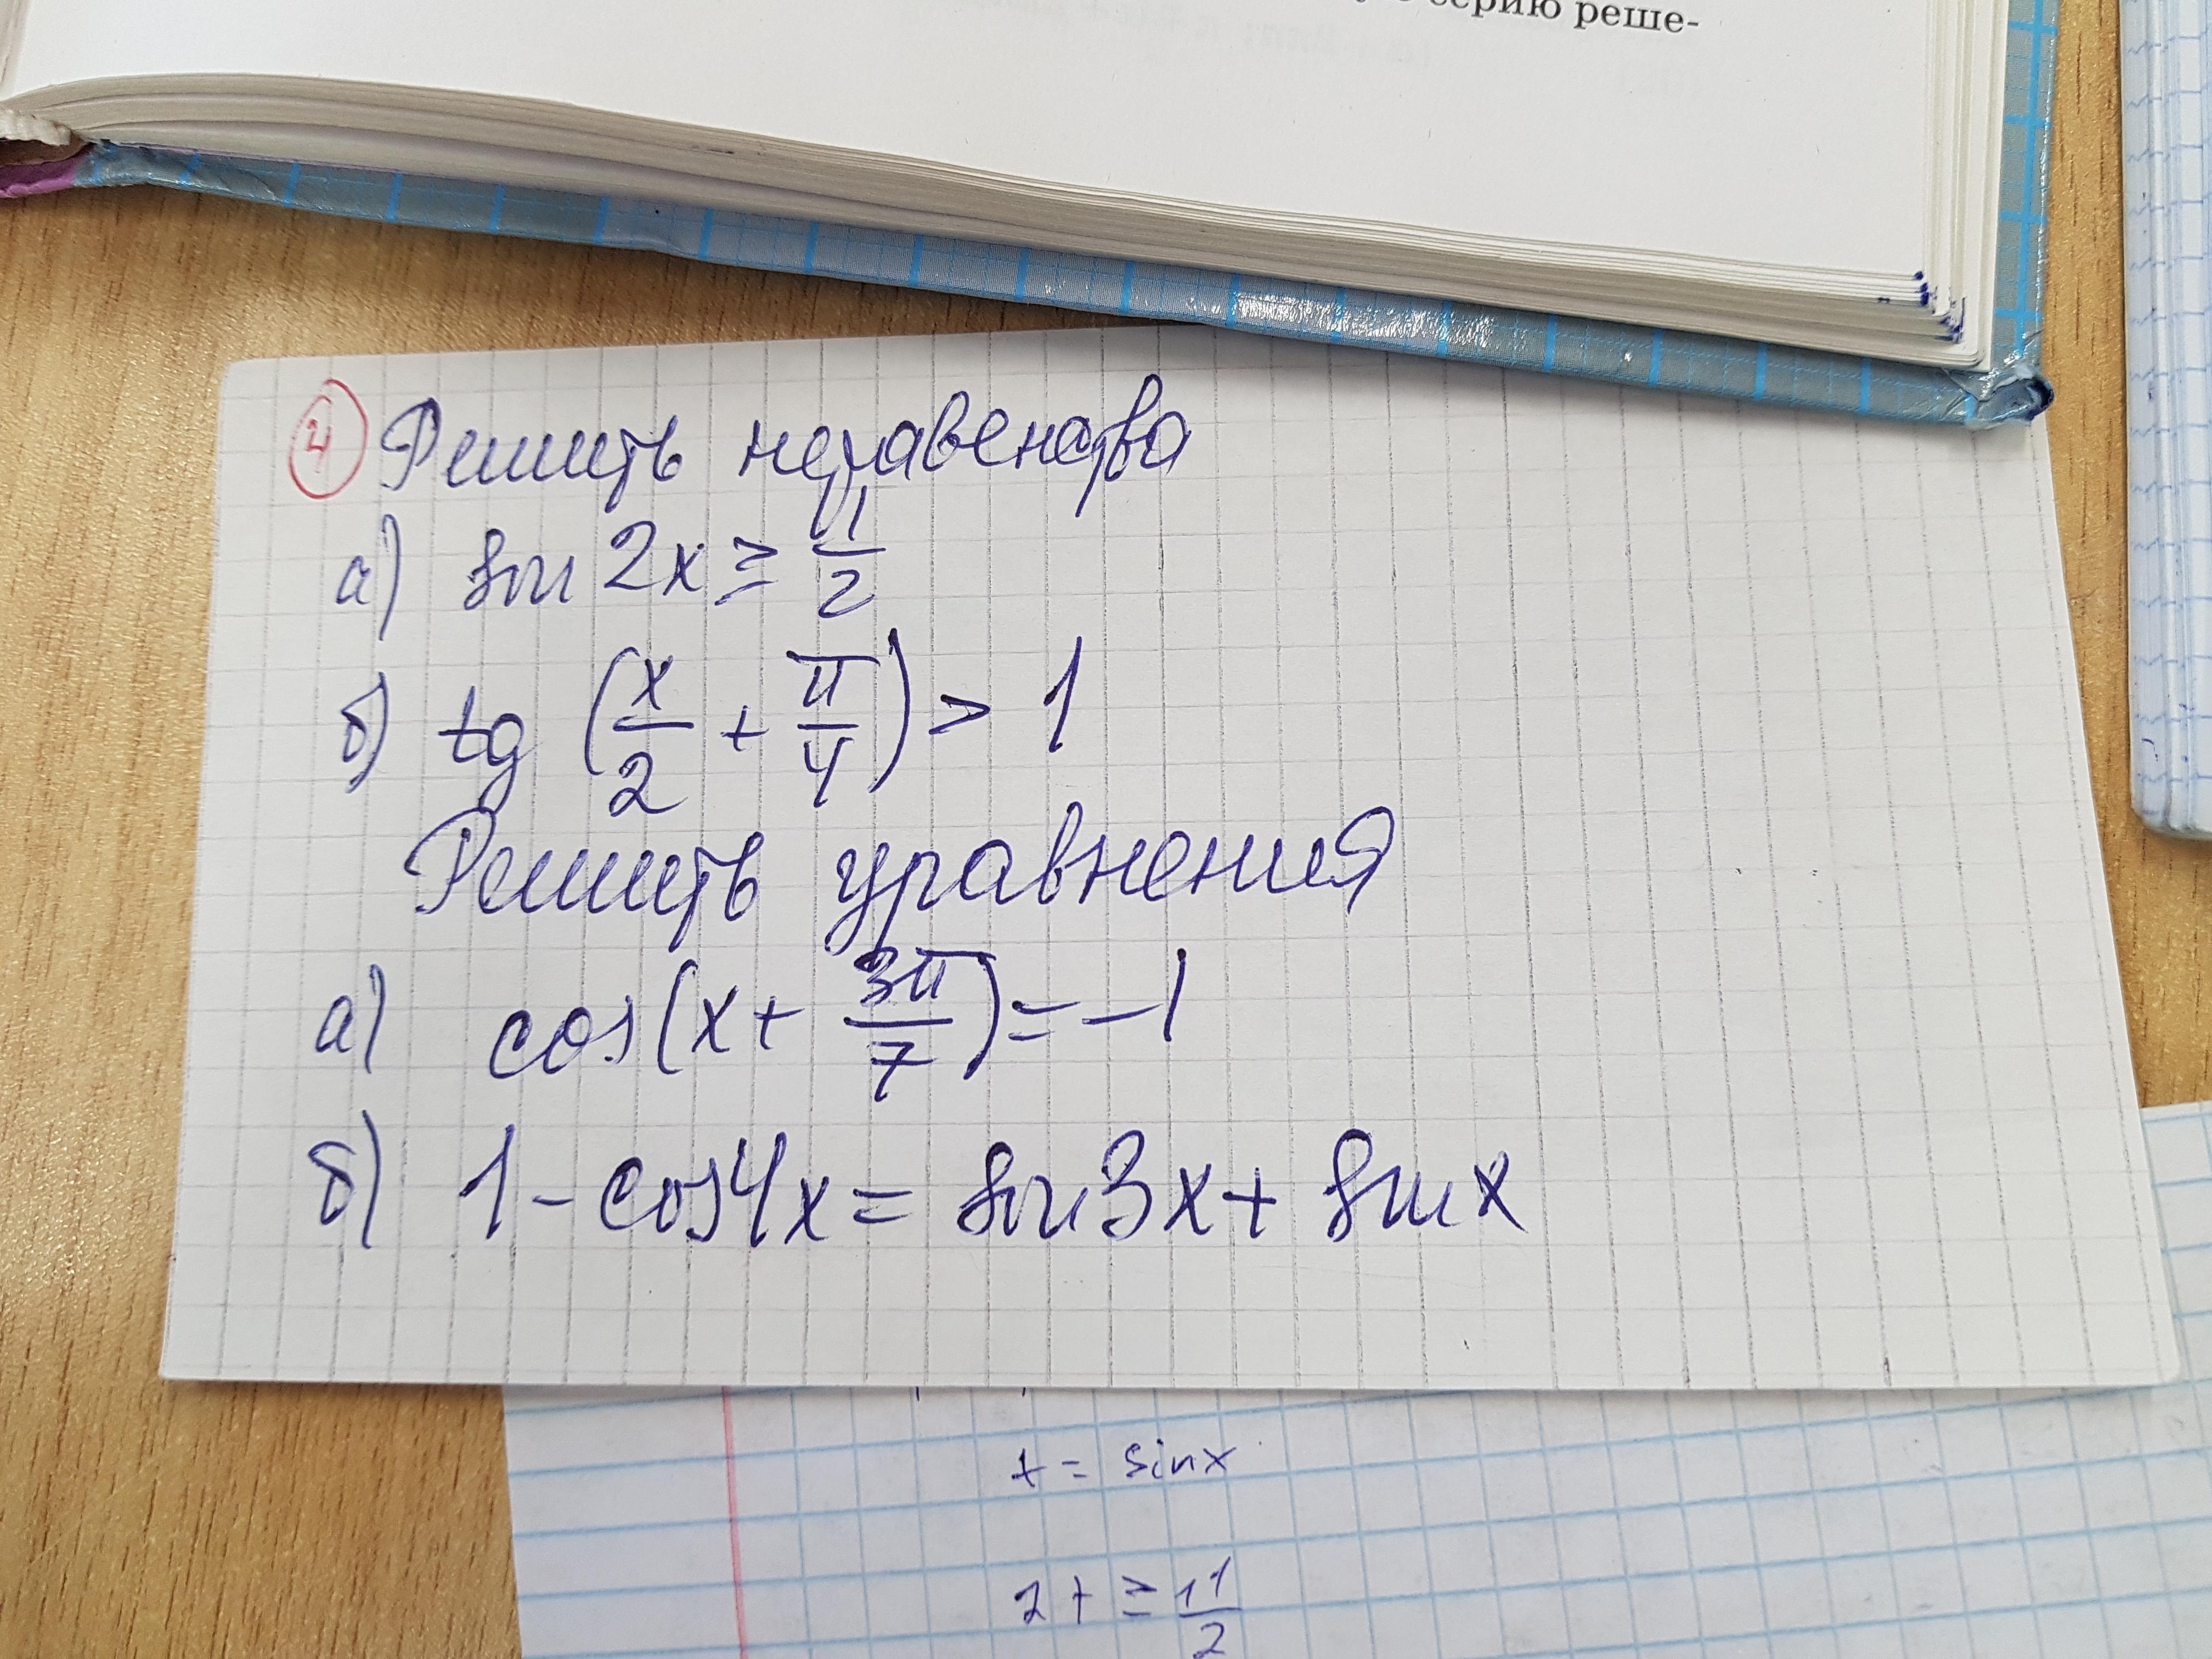 серию реше-
4 Решить неравенства
а) sin 2x ≥ 11/2
б) tg (x/2 + π/4) > 1
Решить уравнения
а) cos(x + 3π/7) = -1
б) 1 - cos4x = sin3x + sin x
t = sinx
2t ≥ 11/2